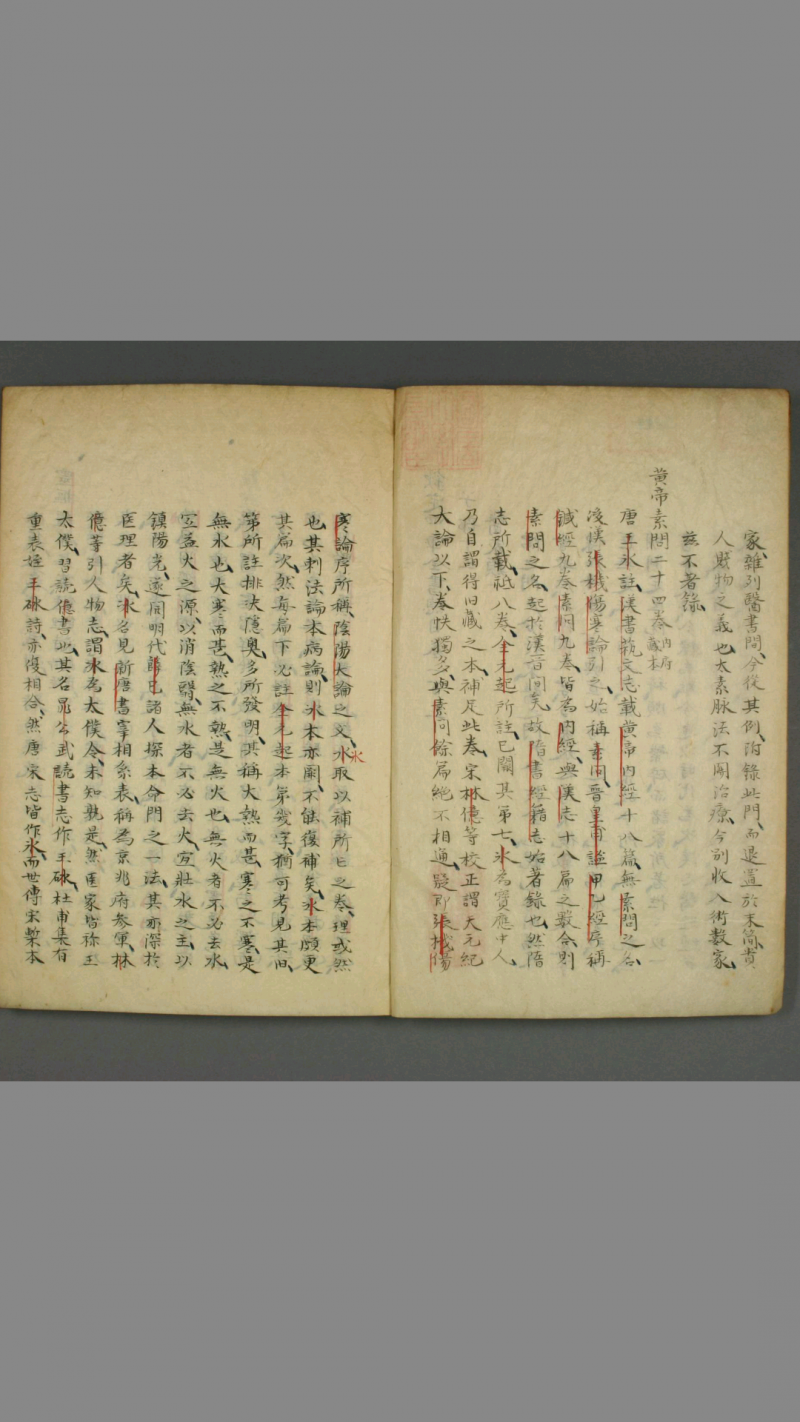 家、雜列醫書間、今從其例、附錄此門、而退置於末簡、貴
人賤物之義也、太素脉法不関治療、今別收入術數家、
玆不著錄、
黃帝素問二十四卷 內府藏本
唐王氷註、漢書藝文志載黃帝內經十八篇、無素問之名、
後漢張機傷寒論引之、始稱素問、晉皇甫謐甲乙經序稱
鍼經九卷素问九卷、皆為內經、與漢志十八篇之數合、則
素問之名、起於漢晉间矣、故隋書經籍志始著錄也、然隋
志所載、祗八卷、全元起所註、已闕其第七、氷為寶應中人、
乃自謂得旧藏之本、補足此卷、宋林億等校正謂天元紀
大論以下、卷帙獨多、與素问餘篇絕不相通、疑即張機傷
寒論序所稱、陰陽大論之文、氷取以補所亡之卷、理或然
也、其刺法論本病論、則氷本亦闕、不能復補矣、氷本頗更
其篇次、然每篇下必註全元起本第幾字、猶可考見其旧、
第所註排決隱奧、多所發明、其稱大熱而甚、寒之不寒、是
無水也、大寒而甚、熱之不熱、是無火也、無火者不必去水、
宜益火之源、以消陰翳、無水者不必去火、宜壯水之主、以
鎮陽光、遂開明代薛己諸人探本命門之一法、其亦深於
医理者矣、氷名見新唐書宰相系表、稱為京兆府參軍、林
億等引人物志、謂氷為太僕令、未知孰是、然医家皆稱王
太僕、習読億書也、其名晁公武読書志作王砅、杜甫集有
重表姪王砅詩、亦復相合、然唐宋志皆作氷、而世傳宋槧本